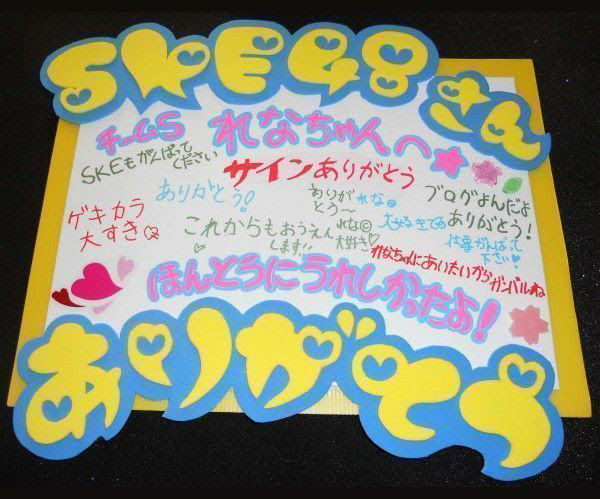 SKE48
さん
チームS れなちゃんへ
SKEもがんばって
ください
サインありがとう
ありがとう!
ゲキカラ
大すき
ありがれな
とう〜
ブログよんだよ
ありがとう!
これからもおうえん
します!!
れな
大好き
大好きです
仕事がんばって
下さい
れなちゃんにあいたいからガンバルね
ほんとうにうれしかったよ!
ありがとう